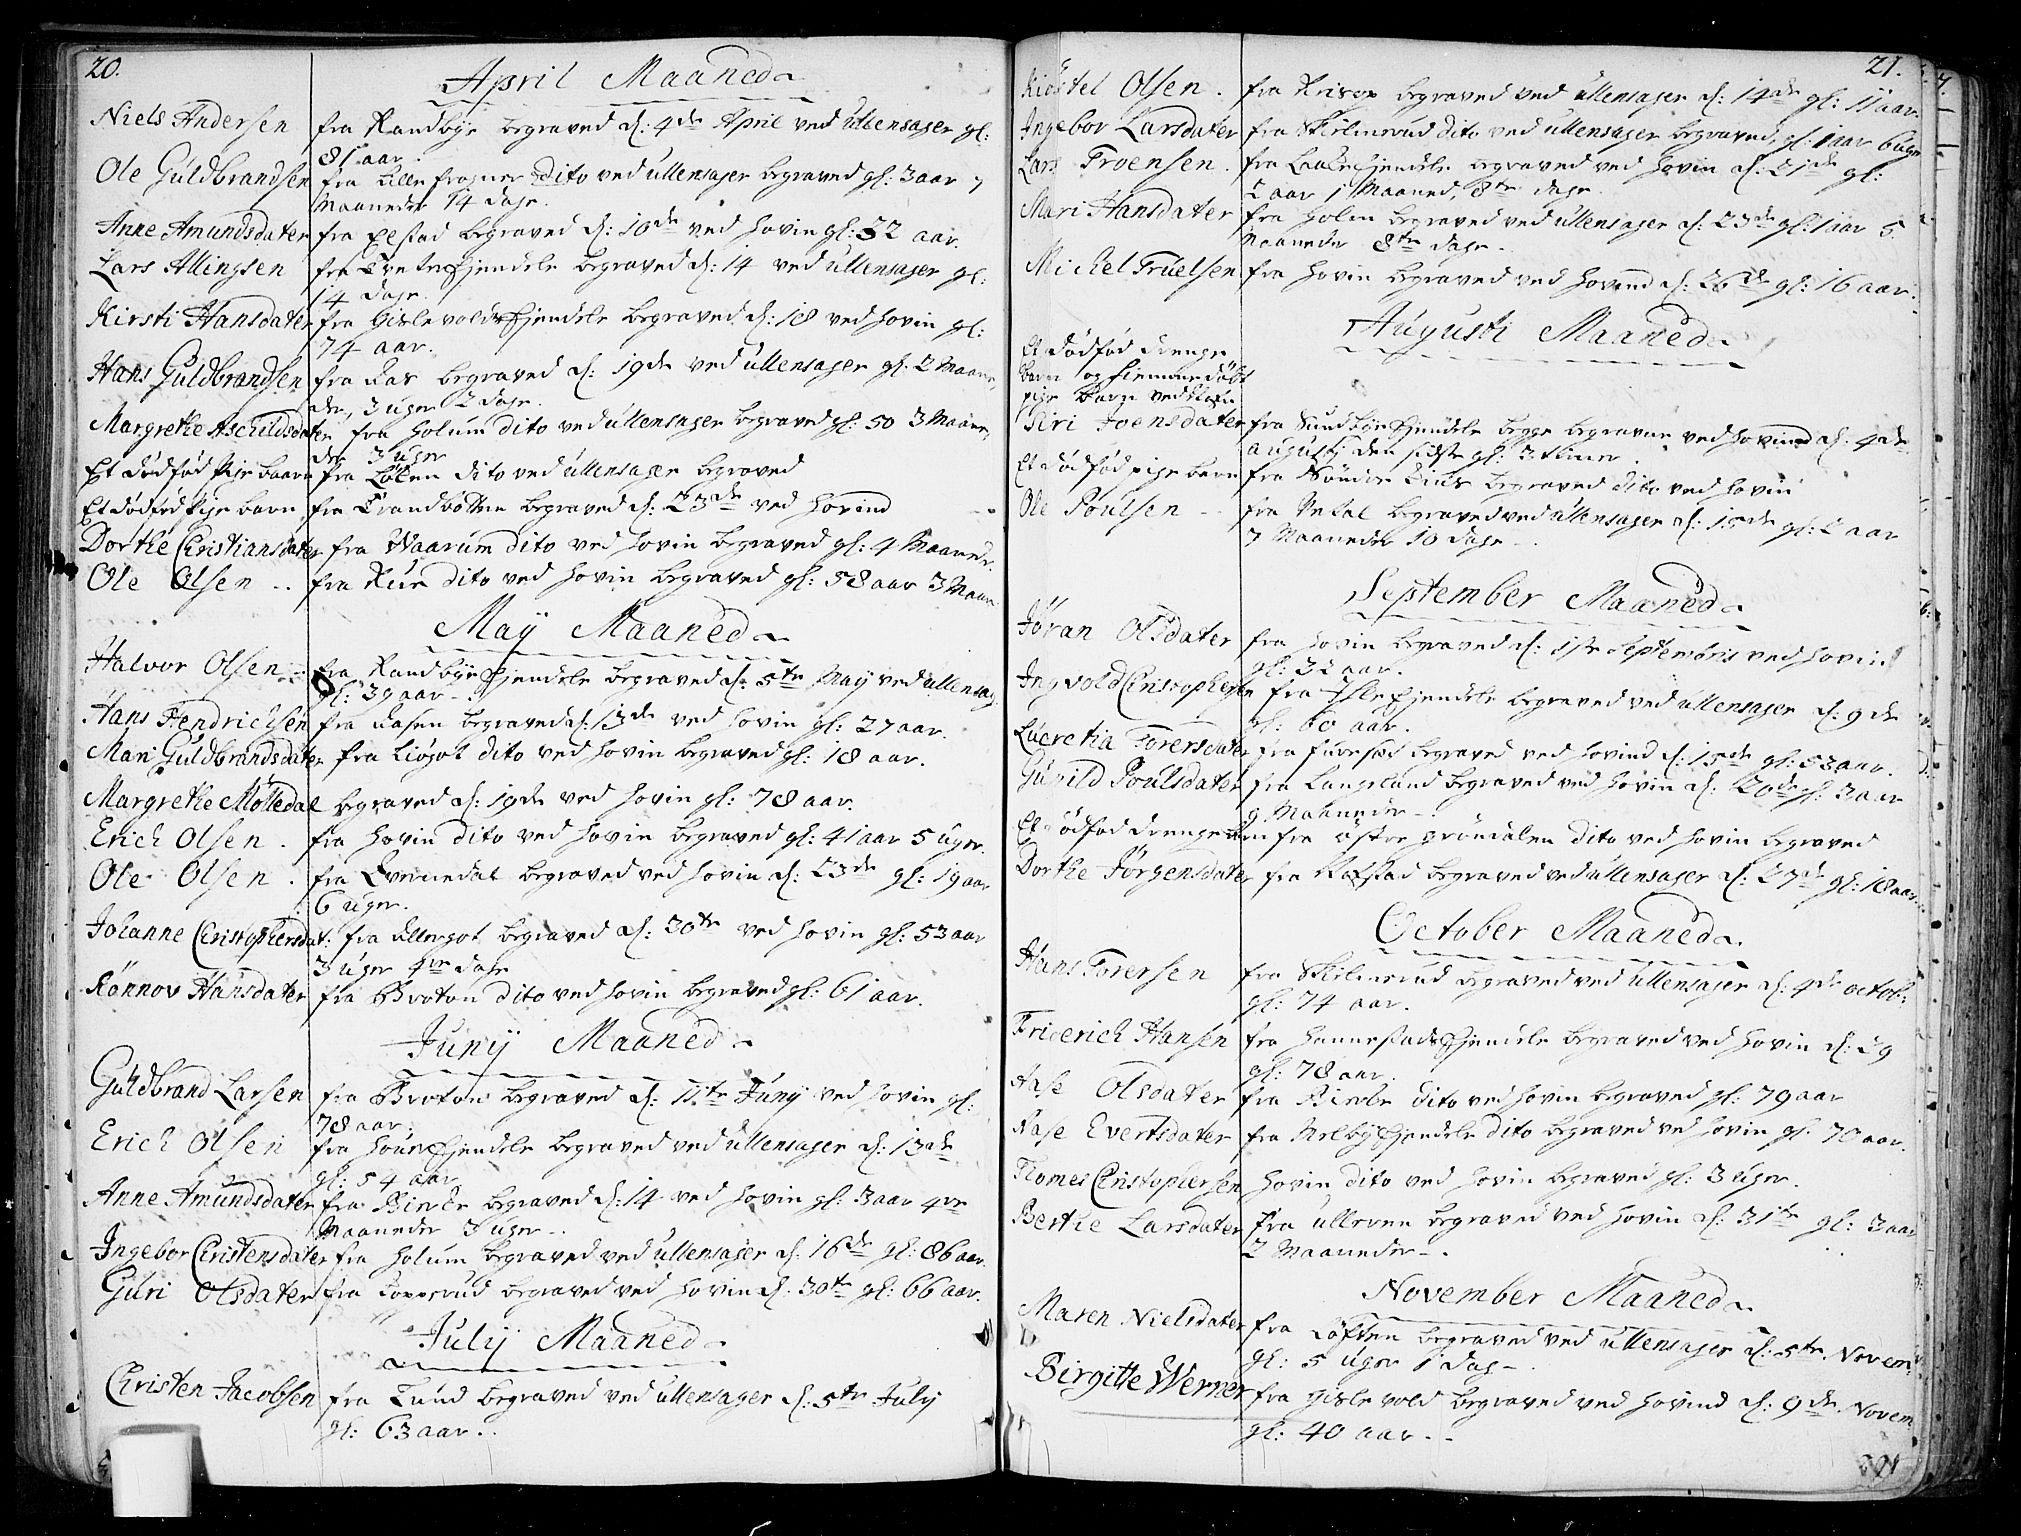 20.
April Maaned
Niels Andersen fra Randbye begraved d: 4de April ved Ullensager gl:
81 aar.
Ole Guldbrandsen fra Lille frogner dito ved Ullensager begraved gl: 3 aar 7
Maaneder 14 dage.
Anne Amundsdater fra Elstad begraved d: 10de ved Hovin gl: 52 aar.
Lars Allingsen fra Tveter Ejendele begraved d: 14 ved Ullensager gl:
14 dage.
Kirsti Hansdater fra Gislevolds Ejendele begraved d: 18 ved Hovin gl:
74 aar.
Hans Guldbrandsen fra begraved d: 19de ved Ullensager gl: 2 Maane,
der, 3 uger 2 dage.
Margrethe Aschildsdater fra Holum dito ved Ullensager begraved gl: 50 3 Maane,
der 3 uger
Et dødfød Pige baarn fra Løken dito ved Ullensager begraved
Et dødfød Pige barn fra Trandbotten begraved d: 23de ved Hovind
Dorthe Christiansdater fra Waarum dito ved Hovin begraved gl: 4 Maaneder.
Ole Olsen .. fra Rue dito ved Hovin begraved gl: 58 aar 3 Maan
May Maaned
Halvor Olsen .. fra Randbye Ejendele begraved d: 5te May ved Ullensag
gl: 39 aar -.
Hans Hendrichsen fra Aasen begraved d: 13de ved Hovin gl: 27 aar.
Mari Guldbrandsdater fra Liøgot dito ved Hovin begraved gl: 18 aar.
Margrethe Mölledal begraved d: 19de ved Hovin gl: 78 aar.
Erich Olsen . fra Hovin dito ved Hovin begraved gl: 41 aar 5 uger.
Ole Olsen . fra Qvennedal begraved ved Hovin d: 23de gl: 19 aar
6 uger.
Johanne Christophersdat: fra Allergot begraved d: 30te ved Hovin gl: 53 aar
3 uger 4re dage
Rönnov Hansdater fra Broton dito ved Hovin begraved gl: 61 aar.
Juny Maaned
Guldbrand Larsen fra Broton begraved d: 11te Juny ved Hovin gl:
78 aar.
Erich Olsen fra Houv Ejendele begraved ved Ullensager d: 13de
gl: 54 aar
Anne Amundsdater fra Bierke begraved d: 14 ved Hovin gl: 3 aar 4re
Maaneder 3 uger -.
Ingebor Christensdater fra Holum begraved ved Ullensager d: 16de gl: 86 aar.
Guri Olsdater fra Topperud begraved ved Hovin d: 30te gl: 66 aar.
July Maaned
Christen Jacobsen fra Tund begraved ved Ullensager d: 5te July
gl: 63 aar..
21.
Kiøstel Olsen . fra Krisge begraved ved Ullensager d: 14de gl: 11 aar.
Ingebor Larsdater fra Skielmerud dito ved Ullensager begraved, gl: 1 aar 6 uger
Lars Troensen . fra Ejendele begraved ved Hovin d: 21de gl:
2 aar 1 Maaned, 8te dage.
Mari Hansdater fra Holm begraved ved Ullensager d: 23de gl: 1 aar 5
Maaneder 8te dage -
Michel Truelsen fra Hovin begraved ved Hovind d: 26de gl: 16 aar.
Augusti Maaned
Et dødfød drenge
barn og hiemmedöbt
pige barn ved Nafn
Siri Joensdater fra Sundbye Ejendele begge begravne ved Hovind d: 4de
Augusty den sidste gl: 3 timer.
Et dødfød pige barn fra Sønder begraved dito ved Hovin
Ole Poulsen - fra begraved ved Ullensager d: 15de gl: 2 aar
7 Maaneder 10 dage -.
September Maaned
Jöran Olsdater fra Hovin begraved d: 1ste Septembris ved Hovin
gl: 32 aar.
Ingvold Christophersen fra Ejendele begraved ved Ullensager d: 9de
gl: 60 aar.
Lucretia Torersdater fra Furesæt begraved ved Hovind d: 15de gl: 53 aar.
Gunild Poulsdater fra Langeland begraved ved Hovin d: 20de gl: 3 aar
9 Maaneder -.
Et dødfød drenge barn fra Østre Gröndalen dito ved Hovin begraved
Dorthe Jørgensdater fra begraved ved Ullensager d: 27de gl: 18 aar.
October Maaned
Hans Torersen fra Skielmerud begraved ved Ullensager d: 4de Octob:
gl: 74 aar.
Friderich Hansen fra Hennestads Ejendele begraved ved Hovin d: 29
gl: 78 aar.
Aase Olsdater fra Bierke dito ved Hovin begraved gl: 79 aar
Aase Evertsdater fra Melbye Ejendele dito begraved ved Hovin gl: 70 aar.
Thomes Christophersen Hovin dito ved Hovin begraved gl: 3 uger.
Berthe Larsdater fra Ulleren begraved ved Hovin d: 31te gl: 3 aar
2 Maaneder -.
November Maaned
Maren Nielsdater fra Løften begraved ved Ullensager d: 5te Novem:
gl: 5 uger 1 dag -.
Birgitte Werner fra Gislevold begraved ved Hovind d: 9de Novem
gl: 40 aar - -